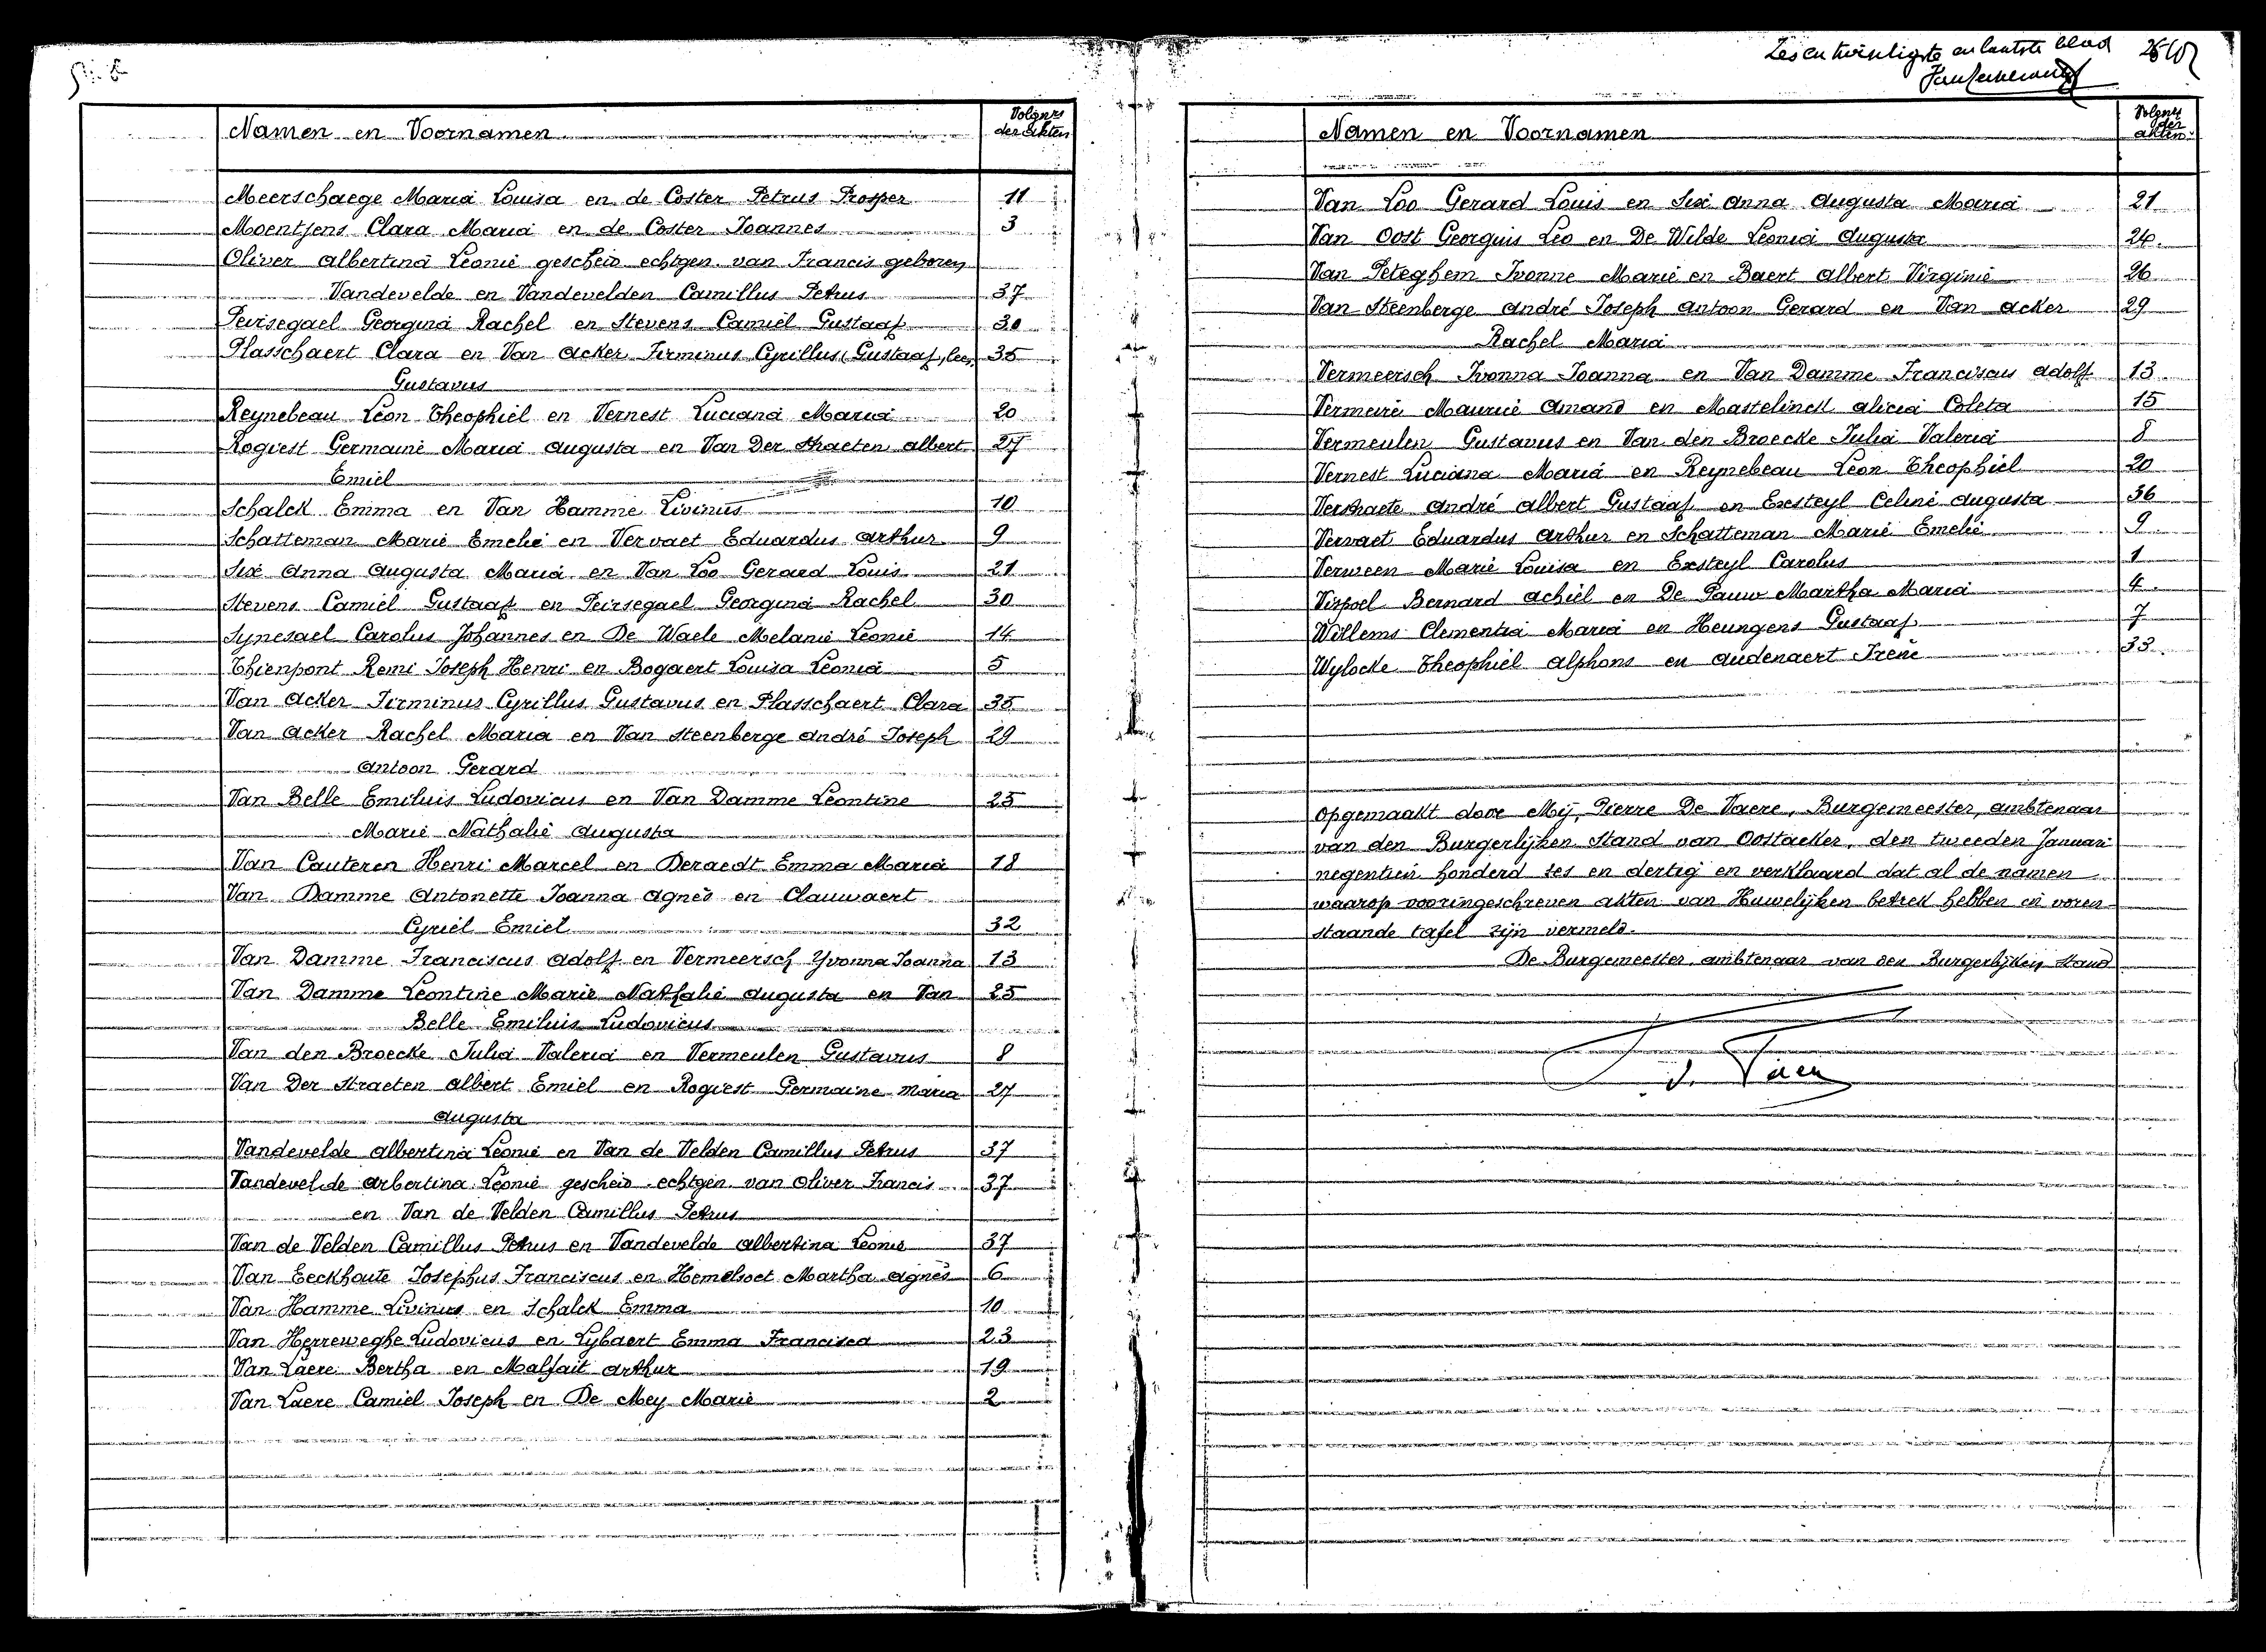 Namen en Voornamen
Volgnrs
der akten
Meerschaege Maria Louisa en de Coster Petrus Prosper 11
Moentjens Clara Maria en de Coster Joannes 3
Oliver Albertina Leonie gescheid echtgen. van Francis geboren
Vandevelde en Vandevelden Camillus Petrus 37
Peirsegael Georgina Rachel en Stevens Camiel Gustaaf 30
Plasschaert Clara en Van Acker Firminus Cyrillus (Gustaaf, lees, 35
Gustavus
Reynebeau Léon Theophiel en Vernest Luciana Maria 20
Rogiest Germaine Maria Augusta en Van Der Straeten Albert 27
Emiel
Schalck Emma en Van Hamme Livinus 10
Schatteman Marie Emelie en Vervaet Eduardus Arthur 9
Sixe Anna Augusta Maria en Van Loo Gerard Louis 21
Stevens Camiel Gustaaf en Peirsegael Georgina Rachel 30
Synesael Carolus Johannes en De Waele Melanie Leonie 14
Thienpont Remi Joseph Henri en Bogaert Louisa Leonia 5
Van Acker Firminus Cyrillus Gustavus en Plasschaert Clara 35
Van Acker Rachel Maria en Van Steenberge André Joseph 29
Antoon Gerard
Van Belle Emiluis Ludovicus en Van Damme Leontine 25
Marie Nathalie Augusta
Van Cauteren Henri Marcel en Deraedt Emma Maria 18
Van Damme Antonette Joanna Agnes en Clauwaert
Cyriel Emiel 32
Van Damme Franciscus Adolf en Vermeersch Yvonna Joanna 13
Van Damme Leontine Marie Nathalie Augusta en Van 25
Belle Emiluis Ludovicus
Van den Broecke Julia Valeria en Vermeulen Gustavus 8
Van Der Straeten Albert Emiel en Rogiest Germaine Maria 27
Augusta
Vandevelde Albertina Leonie en Van de Velden Camillus Petrus 37
Vandevelde Arbertina Leonie gescheid echtgen van Oliver Francis 37
en Van de Velden Camillus Petrus
Van de Velden Camillus Petrus en Vandevelde Albertina Leonie 37
Van Eeckhoute Josephus Franciscus en Hemelsoet Martha Agnes 6
Van Hamme Livinus en Schalck Emma 10
Van Herreweghe Ludovicus en Lybaert Emma Francisca 23
Van Laere Bertha en Malfait Arthur 19
Van Laere Camiel Joseph en De Mey Marie 2
Zes en twintigste en laatste blad
Namen en Voornamen
Volgnrs
der
akten
Van Loo Gerard Louis en Sixe Anna Augusta Maria 21
Van Oost Georguis Leo en De Wilde Leonia Augusta 24
Van Peteghem Ivonne Marie en Baert Albert Virginie 26
Van Steenberge André Joseph Antoon Gerard en Van Acker 29
Rachel Maria
Vermeersch Ivonna Joanna en Van Damme Franciscus Adolf 13
Vermeire Maurice Amand en Mastelinck Alicia Coleta 15
Vermeulen Gustavus en Van den Broecke Julia Valeria 8
Vernest Luciana Maria en Reynebeau Leon Theophiel 20
Verstraete André Albert Gustaaf en Exsteyl Celine Augusta 36
Vervaet Eduardus Arthur en Schatteman Marie Emelie 9
Verween Marie Louisa en Exsteyl Carolus 1
Vispoel Bernard Achiel en De Pauw Martha Maria 4
Willems Clementia Maria en Heungens Gustaaf 7
Wylocke Theophiel Alphons en Audenaert Irène 33
Opgemaakt door Mij, Pierre De Vaere, Burgemeester, ambtenaar
van den Burgerlijken Stand van Oostacker, den tweeden Januari
negentien honderd zes en dertig en verklaard dat al de namen
waarop vooringeschreven akten van Huwelijken betrek hebben in voren
staande tafel zijn vermeld.
De Burgemeester ambtenaar van den Burgerlijken Stand